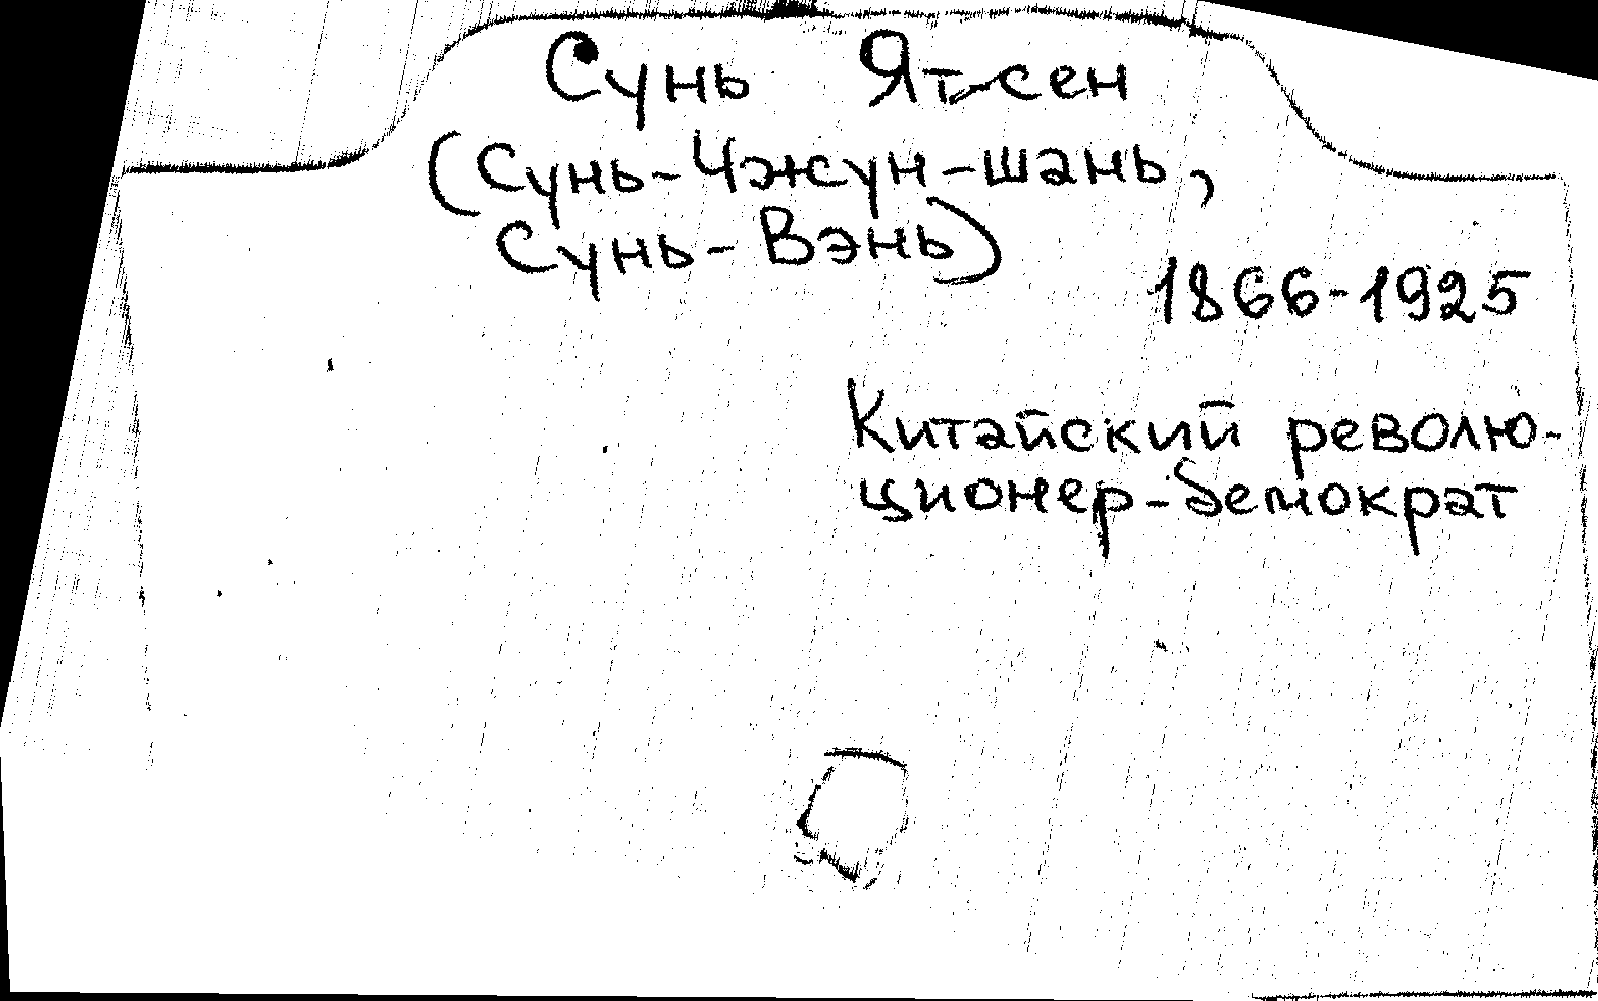 Сунь Ят-сен
(Сунь-Чжун-шань,
Сунь-Вэнь)
1866-1925
Китайский револю-
ционер-демократ